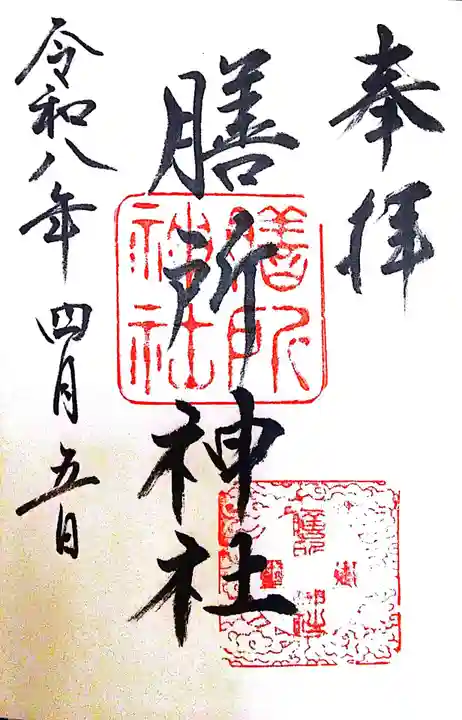 奉拝
膳所神社
令和八年四月五日
膳所
神社